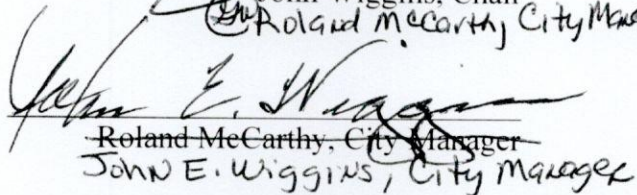 John Wiggins, Chair
Roland McCarthy City Mana
John E. Wiggins
Roland McCarthy, City Manager
John E. Wiggins, City Manager